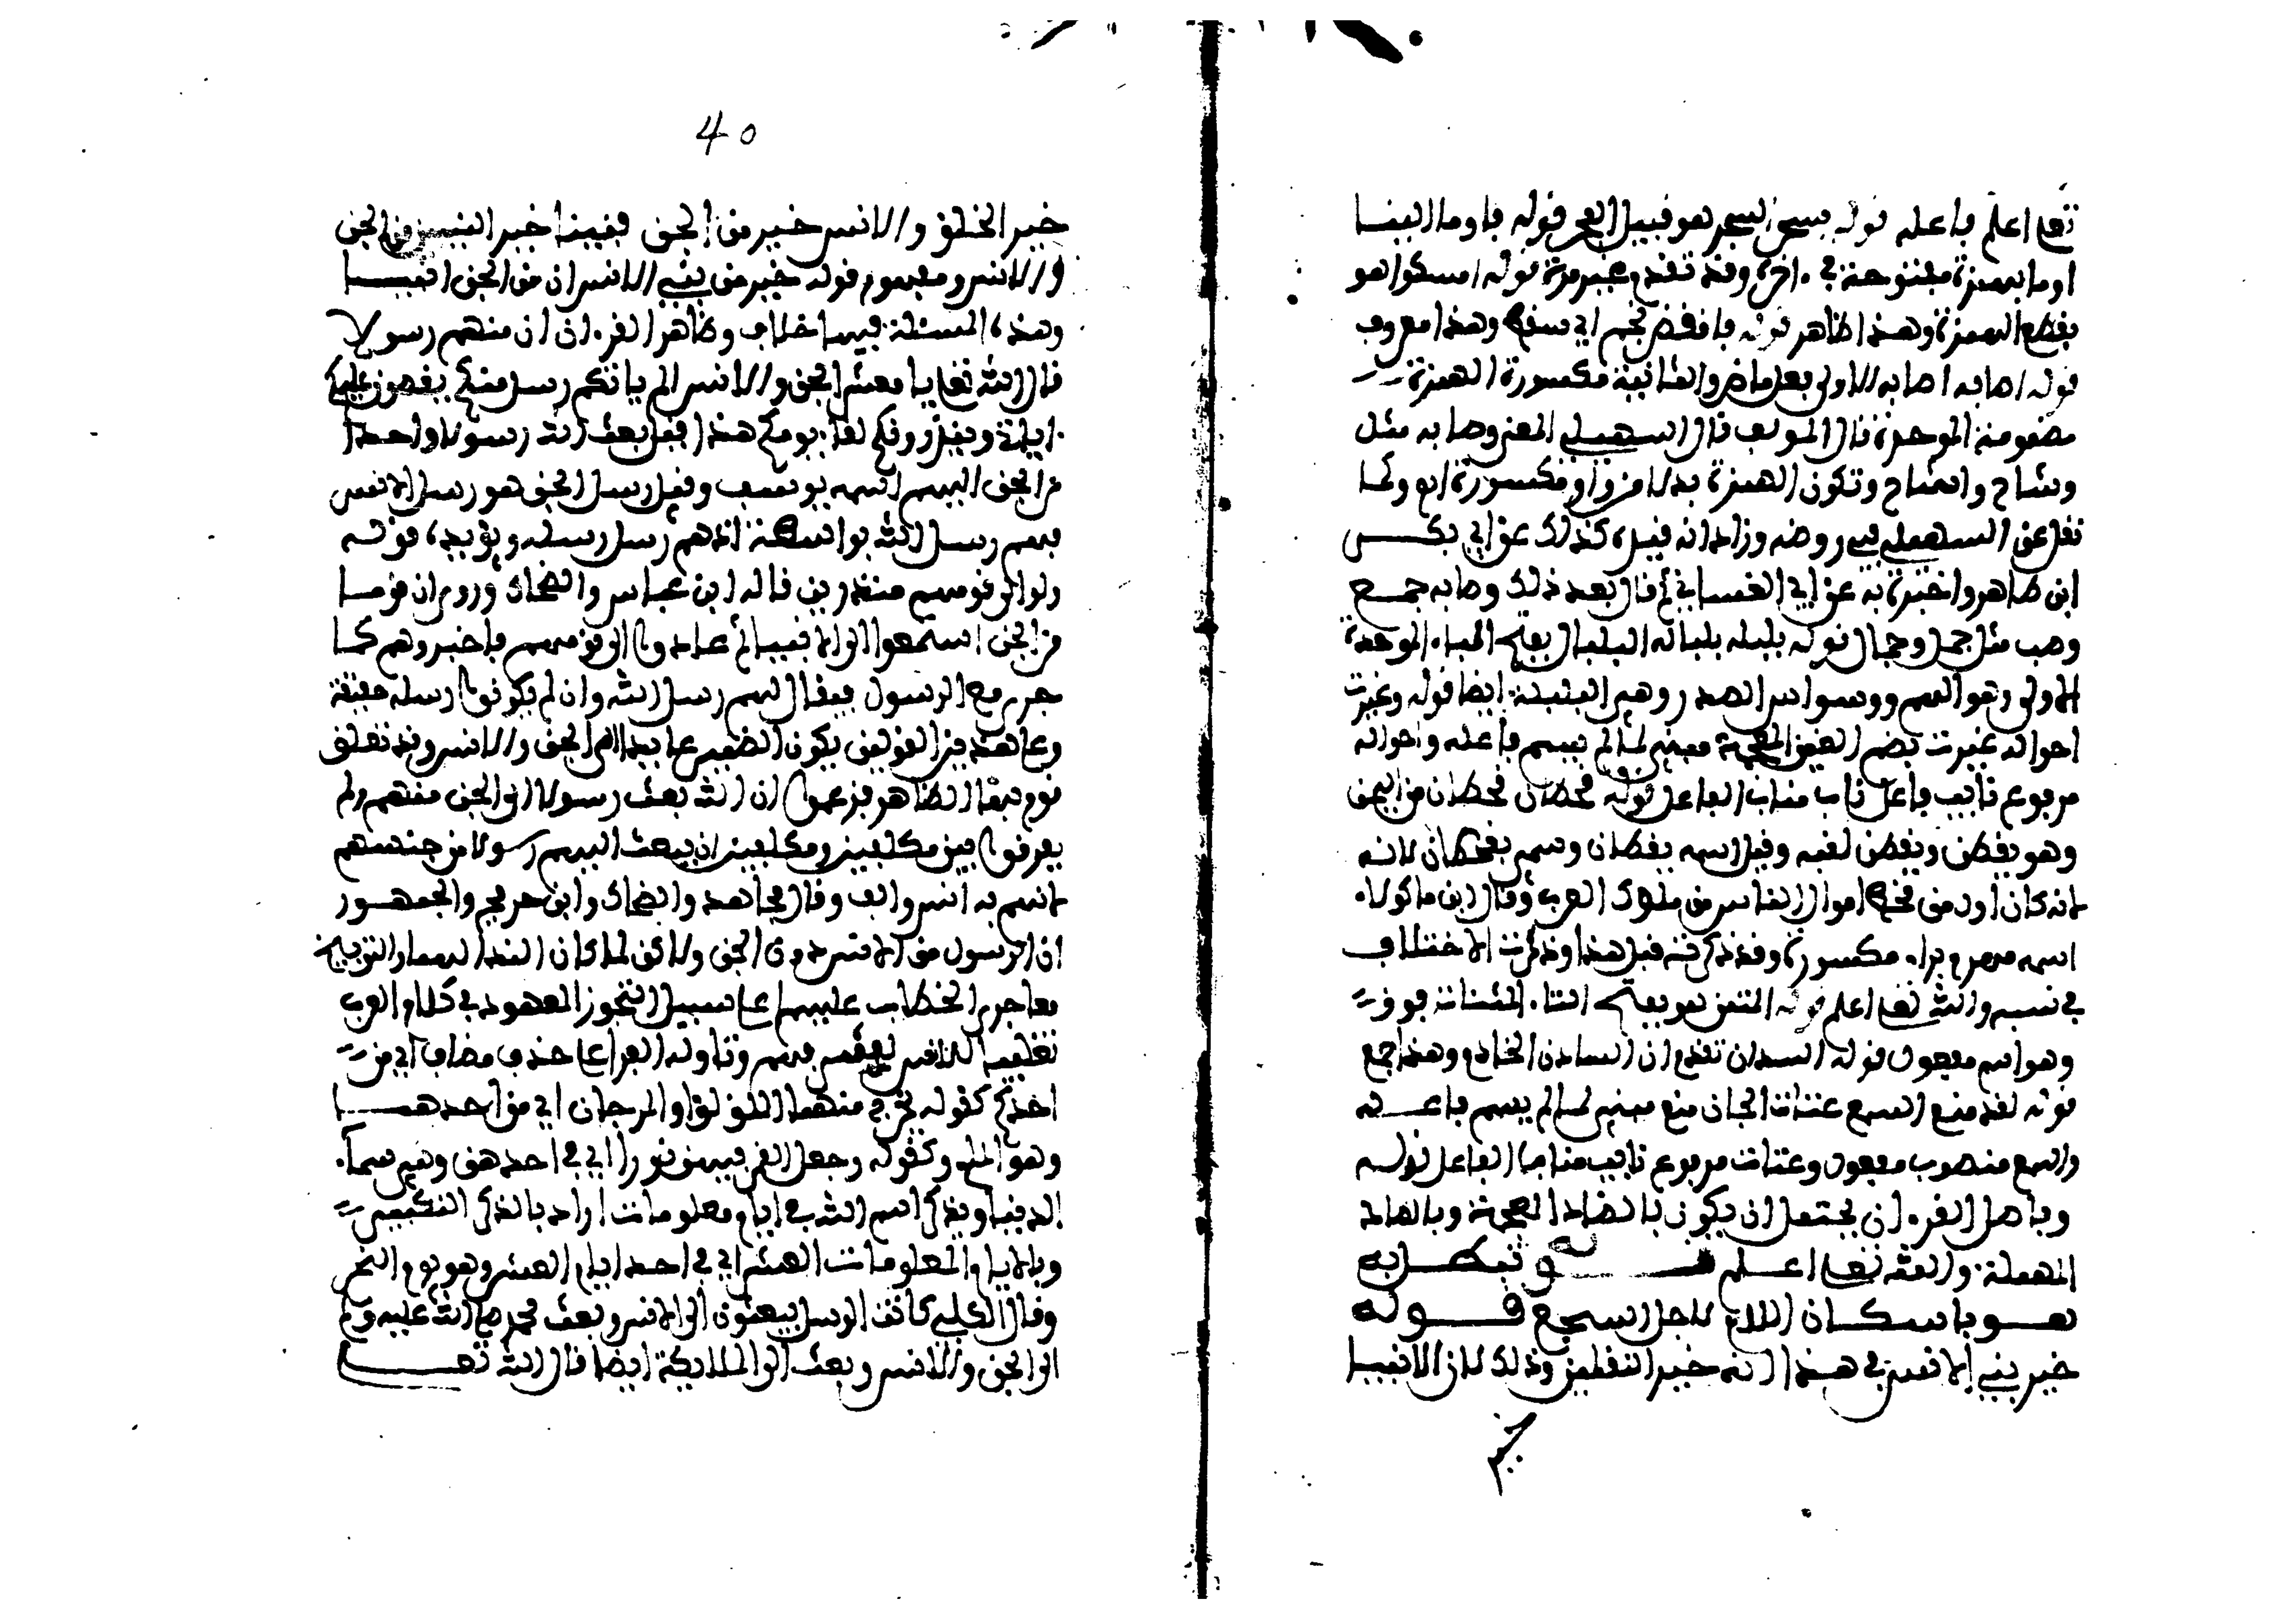 تعلى اعلم فاعله قوله بسحر السحر هو قبيل الفجر قوله فاومأ البنا
اومأ بهمزة مفتوحة في ءاخره وقد تقدم غير مرة قوله امسكوا هو
بقطع الهمزة وهذا ظاهر قوله فانقض نجم اي سقط وهذا معروف
قوله اصابه اصابه الاولى فعل ماض والثانية مكسورة الهمزة
مضمومة الموحدة قال المولف قال السهيلي المعنى وصابه مثل
وشاح واشاح وتكون الهمزة بدلا من واو مكسورة
نقل عن السهيلي في روضه وزاد انه قيده كذلك عن ابي بكر
ابن طاهر واخبره به عن ابي الغساني ثم قال بعد ذلك وصابه جمع
وصب مثل جمل وجمال قوله بلبله بلباله البلبال بفتح الباء الموحدة
الاولى وهو الهم ووسواس الصدر وهي البلبلة ايضا قوله وغيرت
احواله غيرت بضم الغين المعجمة مبني لما لم يسم فاعله واحواله
مرفوع نايب فاعل ناب مناب الفاعل قوله قحطان قحطان من اليمن
وهو يقطن ويقطن لقبه وقيل اسمه يقطان وسمي بقحطان لانه
لانه كان اول من قحط اموال الناس من ملوك العرب وقال ابن ماكولا
اسمه مهرم براء مكسورة وقد ذكرته قبل هذا وذكرت الاختلاف
في نسبه والله تعلى اعلم قوله المتقن هو بفتح التاء المثناة فوق
وهو اسم مفعول قوله السدان تقدم ان السادن الخادم وهذا جمع
قوله لقد منع السمع عتاة الجان منع مبني لما لم يسم فاعله
والسمع منصوب مفعول وعتاة مرفوع نايب مناب الفاعل قوله
وباصل القرءان يحتمل ان يكون بالضاد المعجمة وبالصاد
المهملة والله تعلى اعلم قوله
هو باسكان اللام لاجل السجع قوله
خير بني الانس في هذا انه خير الثقلين وذلك لان الانبيا
40
خير الخلق والانس خير من الجن فنبينا خير النبيين من الجن
والانس ومفهوم قوله خير من بني الانس ان من الجن انبيا
وهذه المسئلة فيها خلاف وظاهر القرءان ان منهم رسولا
قال الله تعلى يا معشر الجن والانس الم ياتكم رسل منكم يقصون عليكم
ءاياتي وينذرونكم لقاء يومكم هذا فقيل بعث الله رسولا واحدا
من الجن اليهم اسمه يوسف وقيل رسل الجن هو رسل الانس
فهم رسل الله بواسطة اذ هم رسل رسله ويؤيده قوله
ولوا الى قومهم منذرين قاله ابن عباس والضحاك وروي ان قوما
من الجن استمعوا الى الانبيا ثم عادوا الى قومهم فاخبروهم كما
جرى مع الرسول فيقال لهم رسل الله وان لم يكونوا رسله حقيقة
وعلى هذين القولين يكون الضمير عايدا الى الجن والانس وقد تعلق
قوم بهذا الظاهر فزعموا ان الله بعث رسولا الى الجن منهم ولم
يفرقوا بين مكلفين ومكلفين ان يبعث اليهم رسولا من جنسهم
لانهم به انس والف وقال مجاهد والضحاك وابن جريج والجمهور
ان الرسول من الانس دون الجن ولاكن لما كان النداء لهما والتوبيخ
معا جرى الخطاب عليهما على سبيل التجوز المعهود في كلام العرب
تغليبا للانس لعقلهم بهم وتاوله الفراء على حذف مضاف اي من
احدكم كقوله يخرج منهما اللؤلؤ والمرجان اي من احدهما
وهو الملح وكقوله وجعل القمر فيهن نورا اي في احدهن وهي سماء
الدنيا ويذكر اسم الله في ايام معلومات اراد بالذكر التكبير
وبالايام المعلومات العشر اي في احد ايام العشر وهو يوم النحر
وقال الكلبي كانت الرسل يبعثون الى الانس وبعث محمد صلى الله عليه وسلم
الى الجن والانس وبعث الى الملايكة ايضا قال الله تعلى